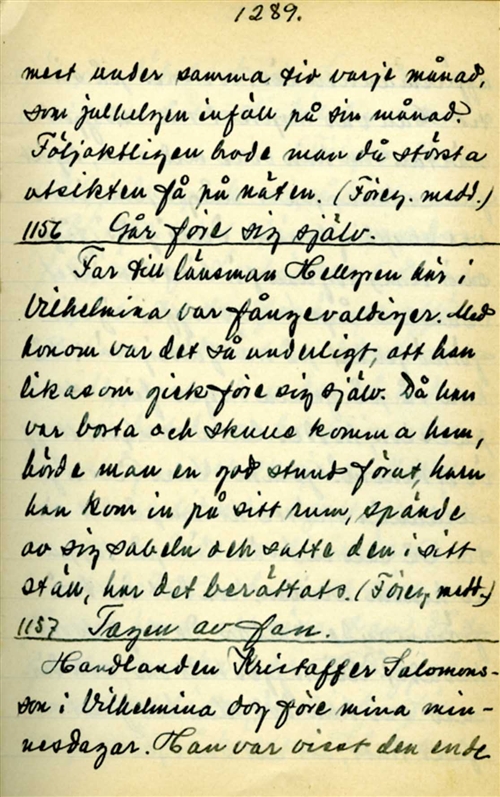 1289.
mest under samma tid varje månad,
som julhelgen infäll på sin månad.
Följaktligen hade man då största
utsikten få på näten. (Föreg. medd.)
1156 Går före sig själv.
Far till länsman Hellgren här i
Vilhelmina var fångevaldiger. Med
honom var det så underligt, att han
likasom gick före sig själv. Då han
var borta och skulle komma hem,
hörde man en god stund förut, huru
han kom in på sitt rum, spände
av sig sabeln och satte den i sitt
ställ, har det berättats. (Föreg. medd.)
1157 Tagen av fan.
Handlanden Kristaffer Salomons-
son i Vilhelmina dog före mina min-
nesdagar. Han var visst den ende